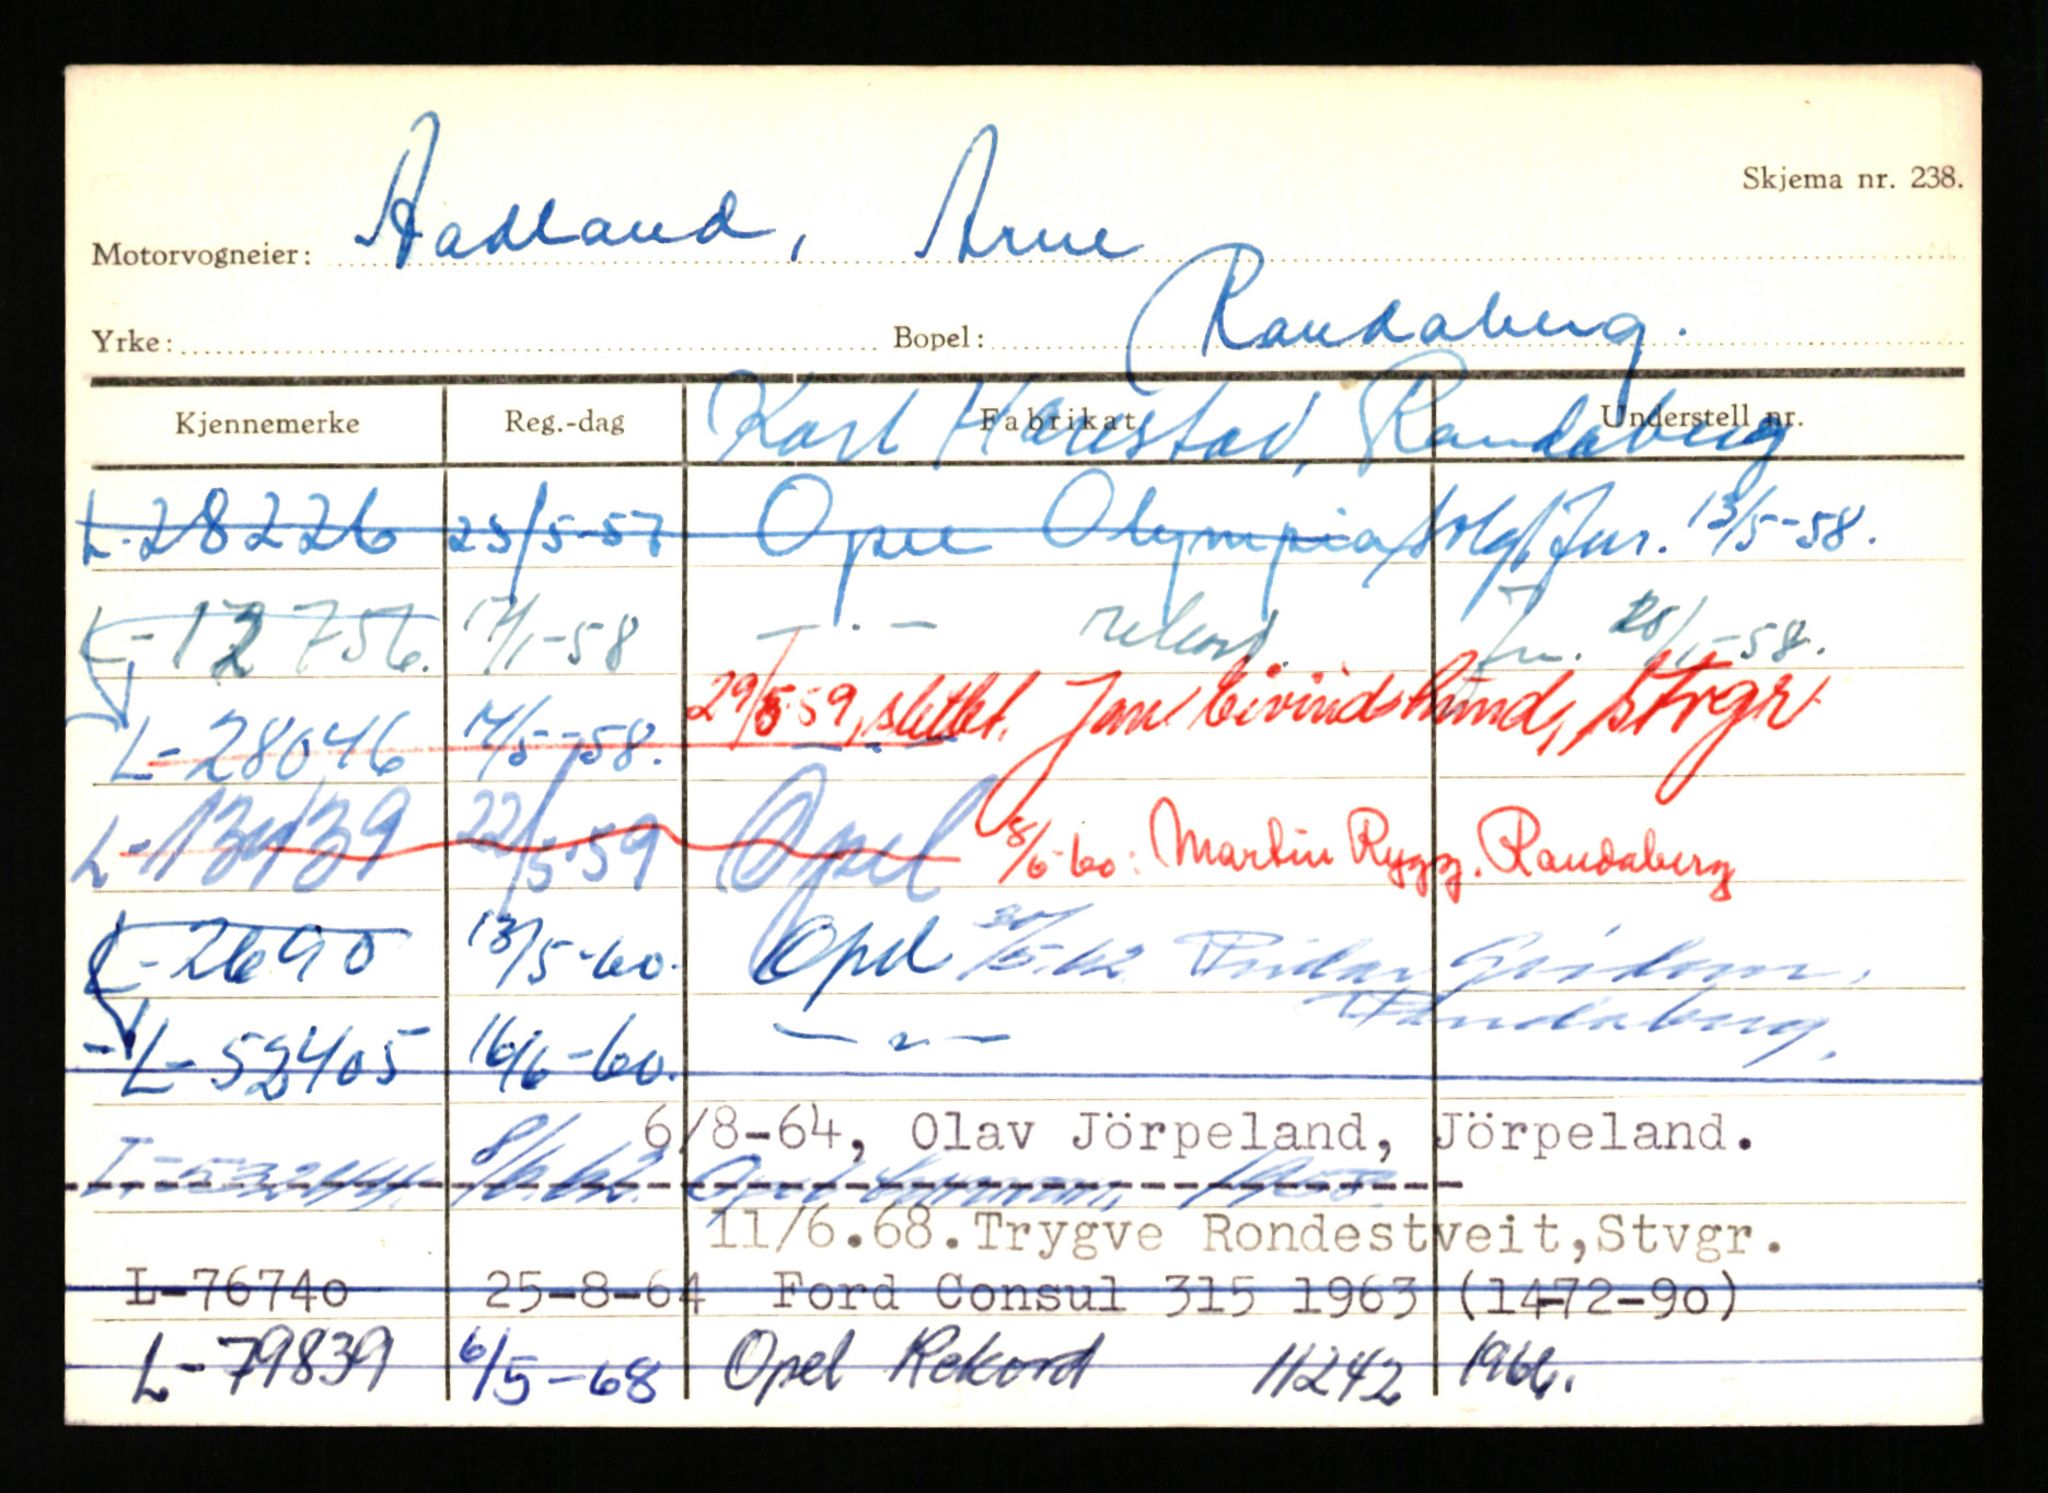 Skjema nr. 238.
Motorvogneier: Aadland, Arne
Yrke: Bopel: Randaberg.
Kjennemerke Reg.-dag Fabrikat Understell nr.
Karl Harestad, Randaberg
L-28226 23/5-57 Opel Olympia solgt Jnr. 13/5-58.
L-12756. 17/1-58 - " - rekord. 20/1-58.
29/5-59, slettet. Jan Eivindslund, Stvgr
L-28046 17/5-58. - " -
L-13439 22/5-59 Opel 8/6-60: Martin Rygg. Randaberg
L-2690 13/5-60. Opel 30/5-62
Randaberg.
L-52405 16/6-60. - " -
6/8-64, Olav Jörpeland, Jörpeland.
8/6-62. Opel
11/6.68.Trygve Rondestveit,Stvgr.
L-76740 25-8-64 Ford Consul 315 1963 (1472-90)
L-79839 6/5-68 Opel Rekord 11242 1966.